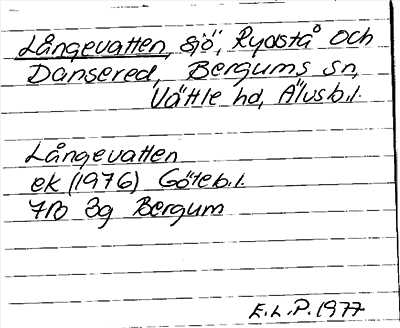 Långevatten, sjö, Rydstå och
Dansered, Bergums sn,
Vättle hd, Älvsb.l.
Långevatten
ek (1976) Göteb.l.
7B 3g Bergum
E.L.P. 1977